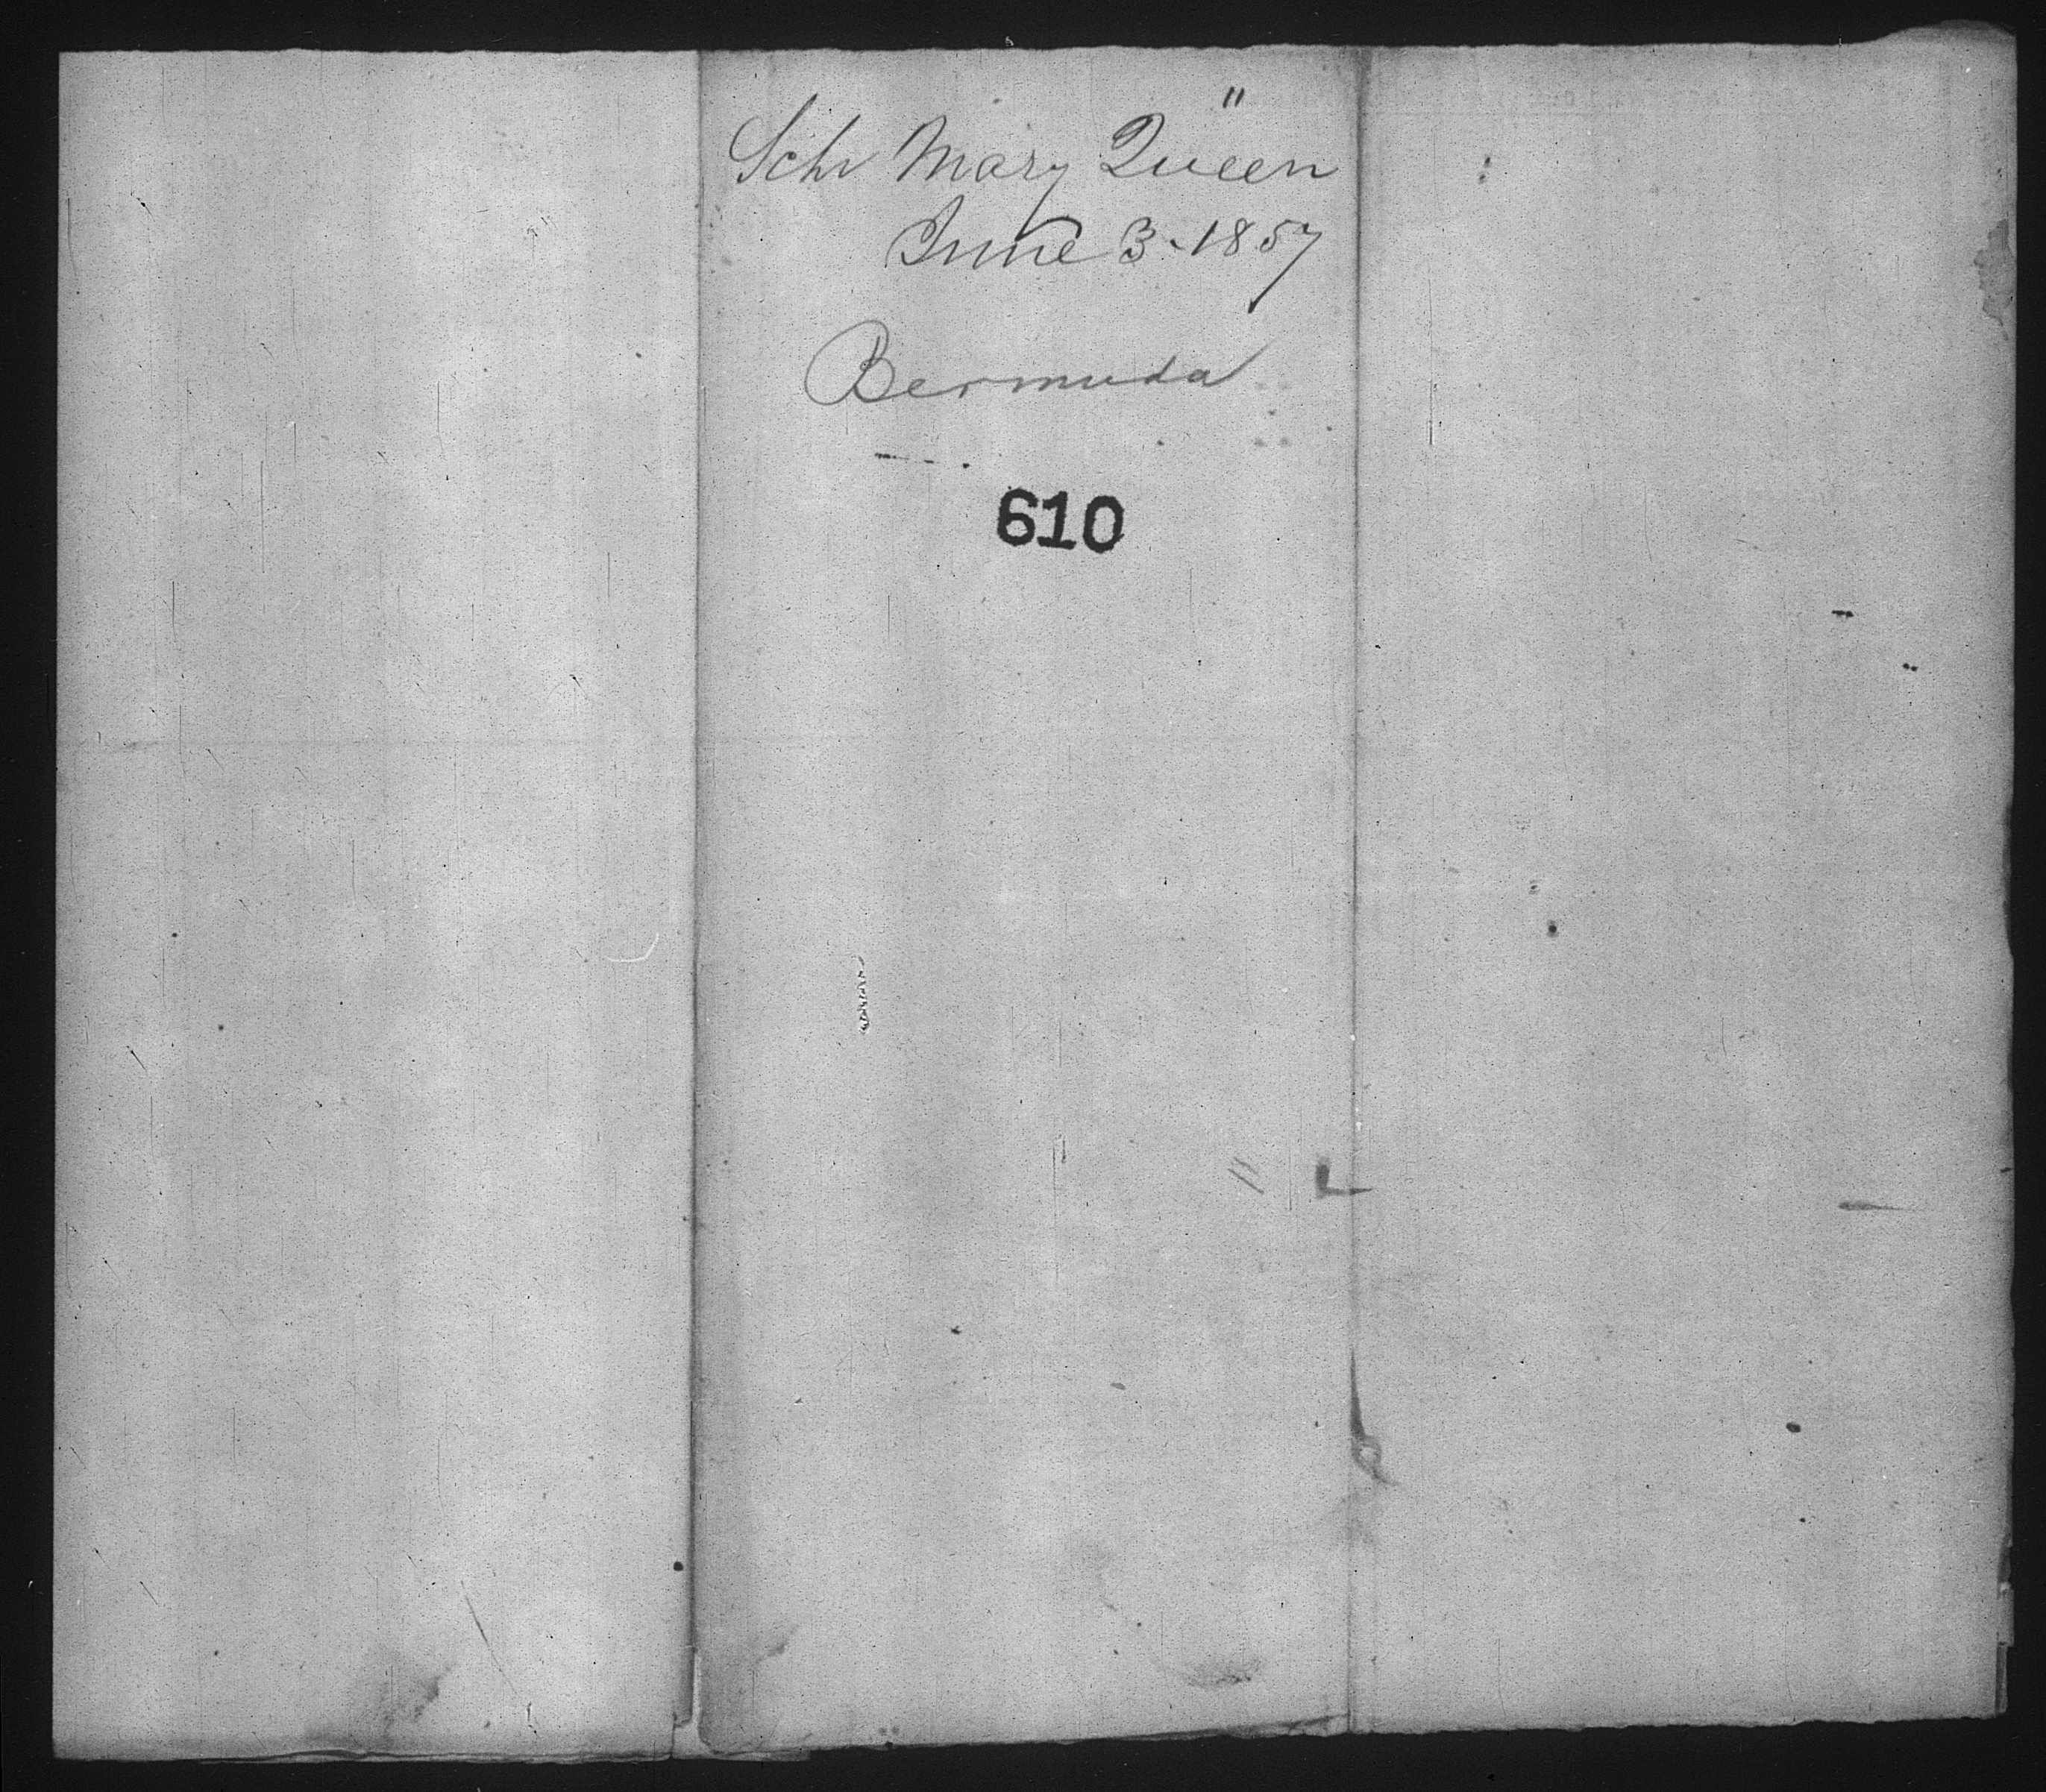 Schr Mary Queen "
June 3. 1857
Bermuda
610